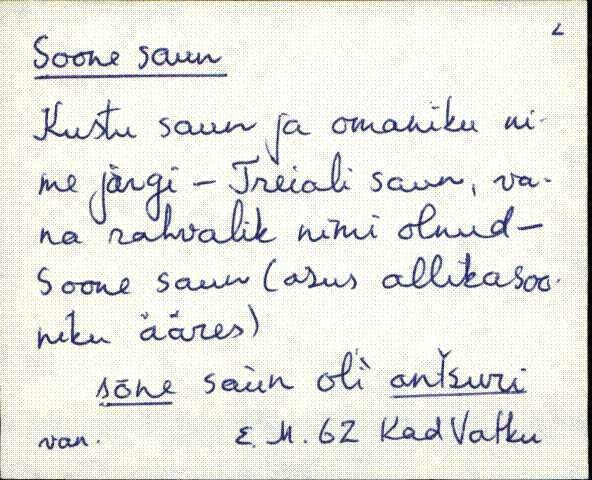 2
Soone saun
Kustu saun ja omaniku ni-
me järgi – Treiali saun, va-
na rahvalik nimi olnud –
Soone saun (asus allikasoo-
niku ääres)
sōne saùn olì antsuri
van. E. M. 62 Kad Vatku